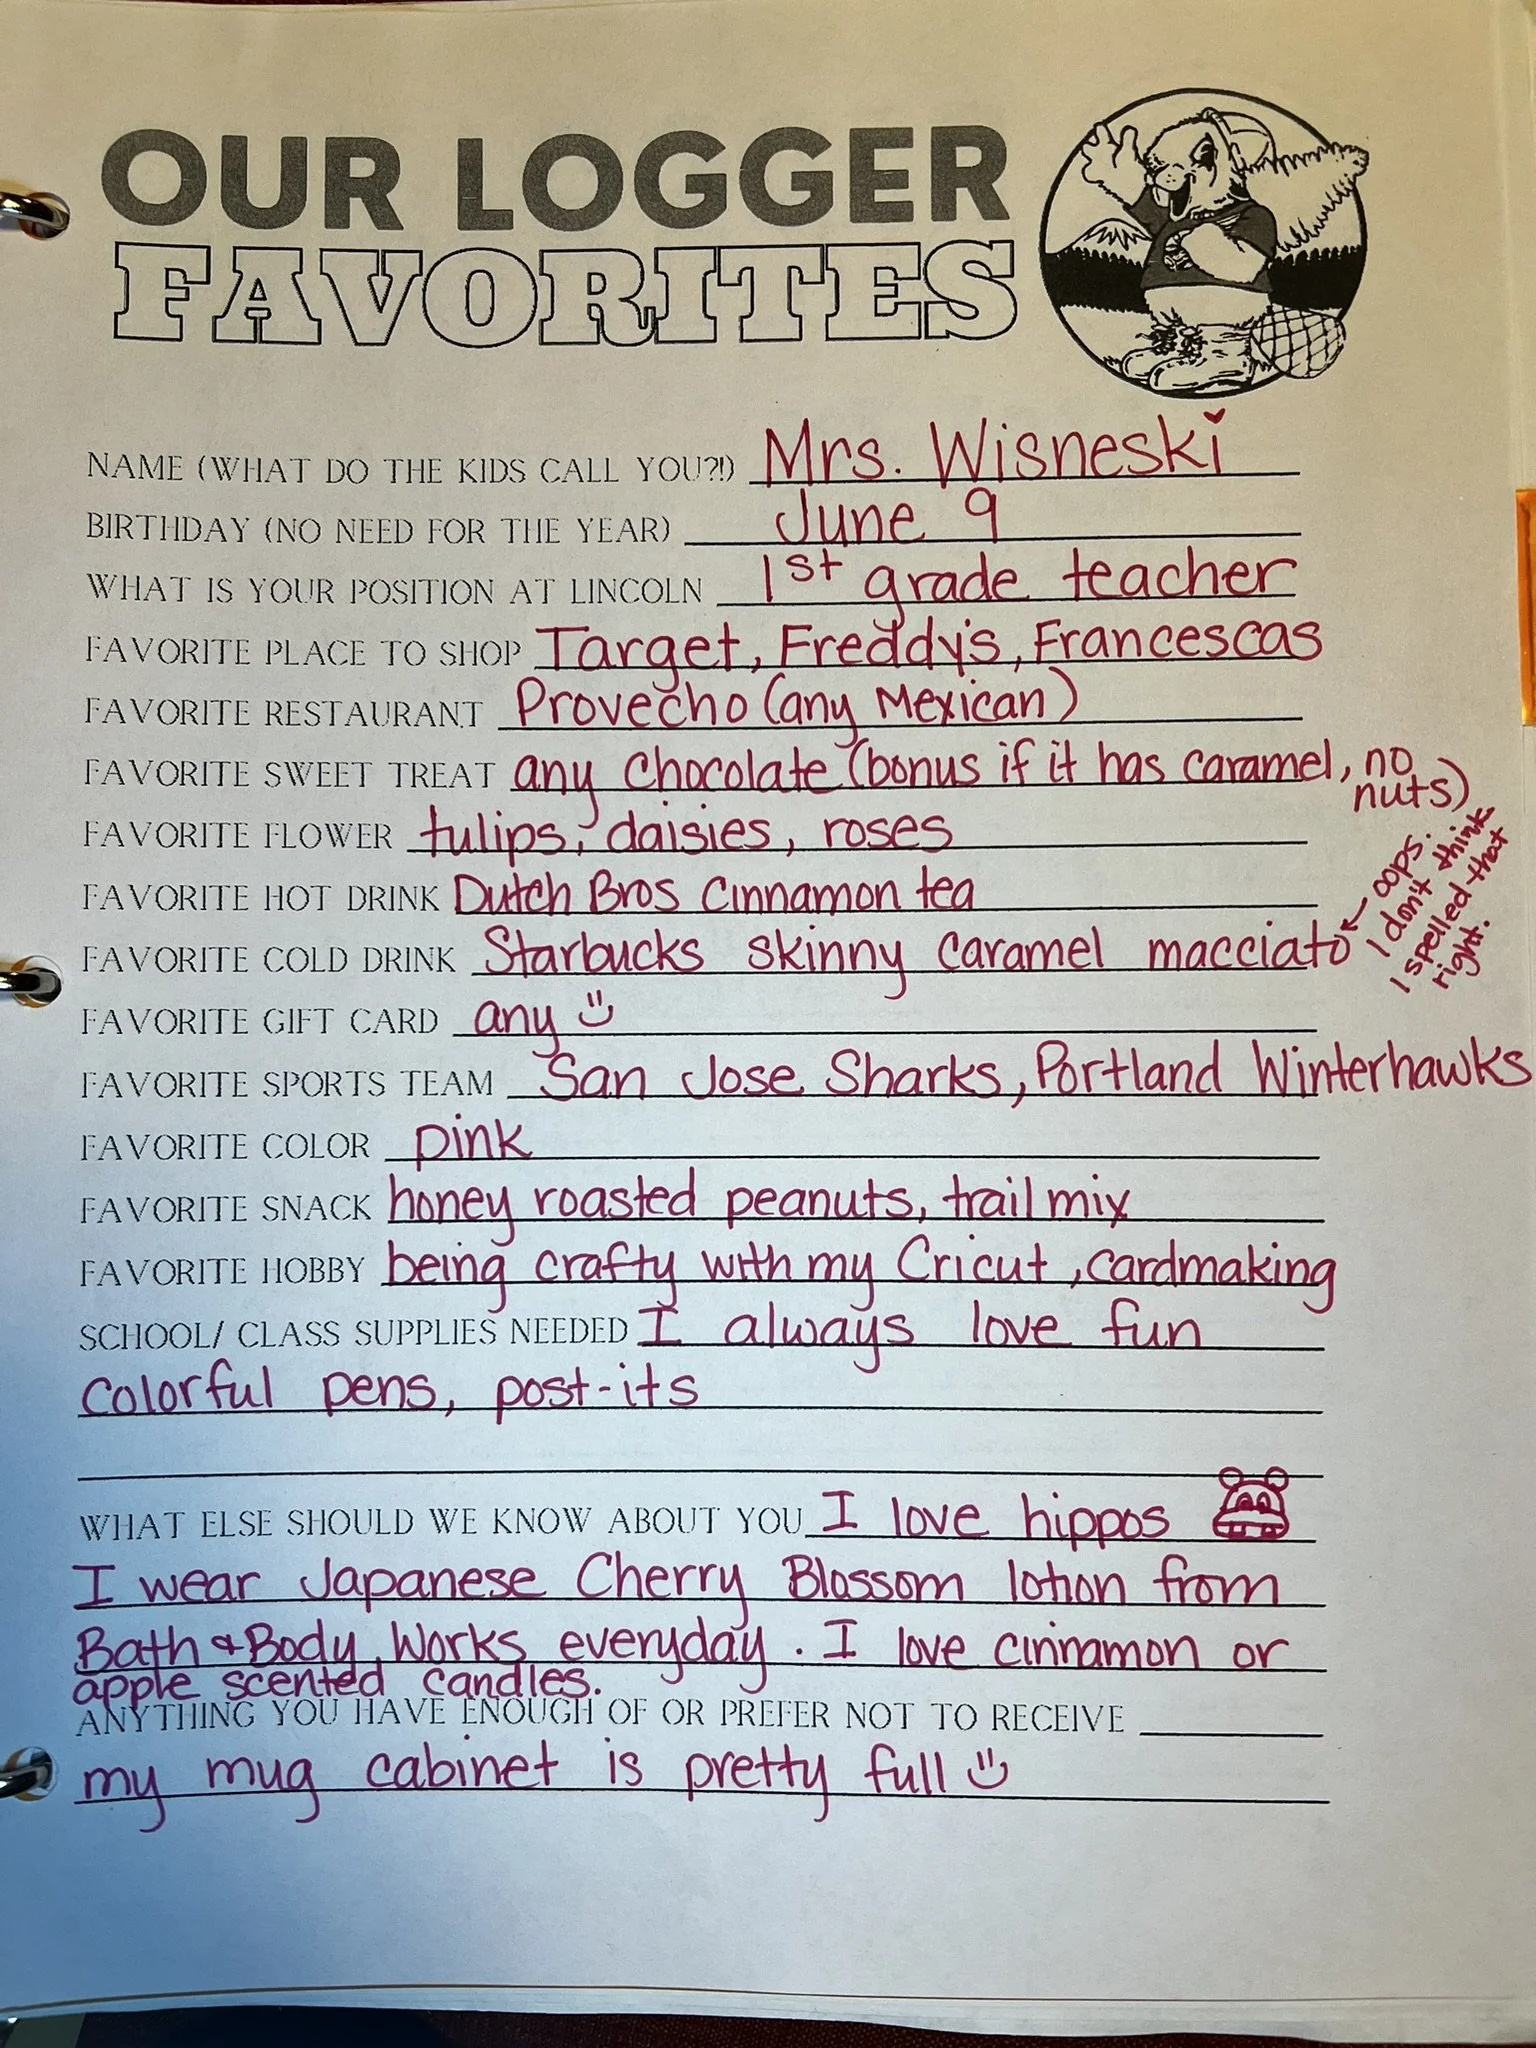 OUR LOGGER
FAVORITES
NAME (WHAT DO THE KIDS CALL YOU?!) Mrs. Wisneski
BIRTHDAY (NO NEED FOR THE YEAR) June 9
WHAT IS YOUR POSITION AT LINCOLN 1st grade teacher
FAVORITE PLACE TO SHOP Target, Freddy's, Francescas
FAVORITE RESTAURANT Provecho (any Mexican)
FAVORITE SWEET TREAT any chocolate (bonus if it has caramel, no
nuts)
FAVORITE FLOWER tulips, daisies, roses
FAVORITE HOT DRINK Dutch Bros Cinnamon tea
FAVORITE COLD DRINK Starbucks skinny caramel macciato
← oops.
I don't think
I spelled that
right.
FAVORITE GIFT CARD any
FAVORITE SPORTS TEAM San Jose Sharks, Portland Winterhawks
FAVORITE COLOR pink
FAVORITE SNACK honey roasted peanuts, trail mix
FAVORITE HOBBY being crafty with my Cricut, cardmaking
SCHOOL/ CLASS SUPPLIES NEEDED I always love fun
colorful pens, post-its
WHAT ELSE SHOULD WE KNOW ABOUT YOU I love hippos
I wear Japanese Cherry Blossom lotion from
Bath & Body Works everyday. I love cinnamon or
apple scented candles.
ANYTHING YOU HAVE ENOUGH OF OR PREFER NOT TO RECEIVE
my mug cabinet is pretty full